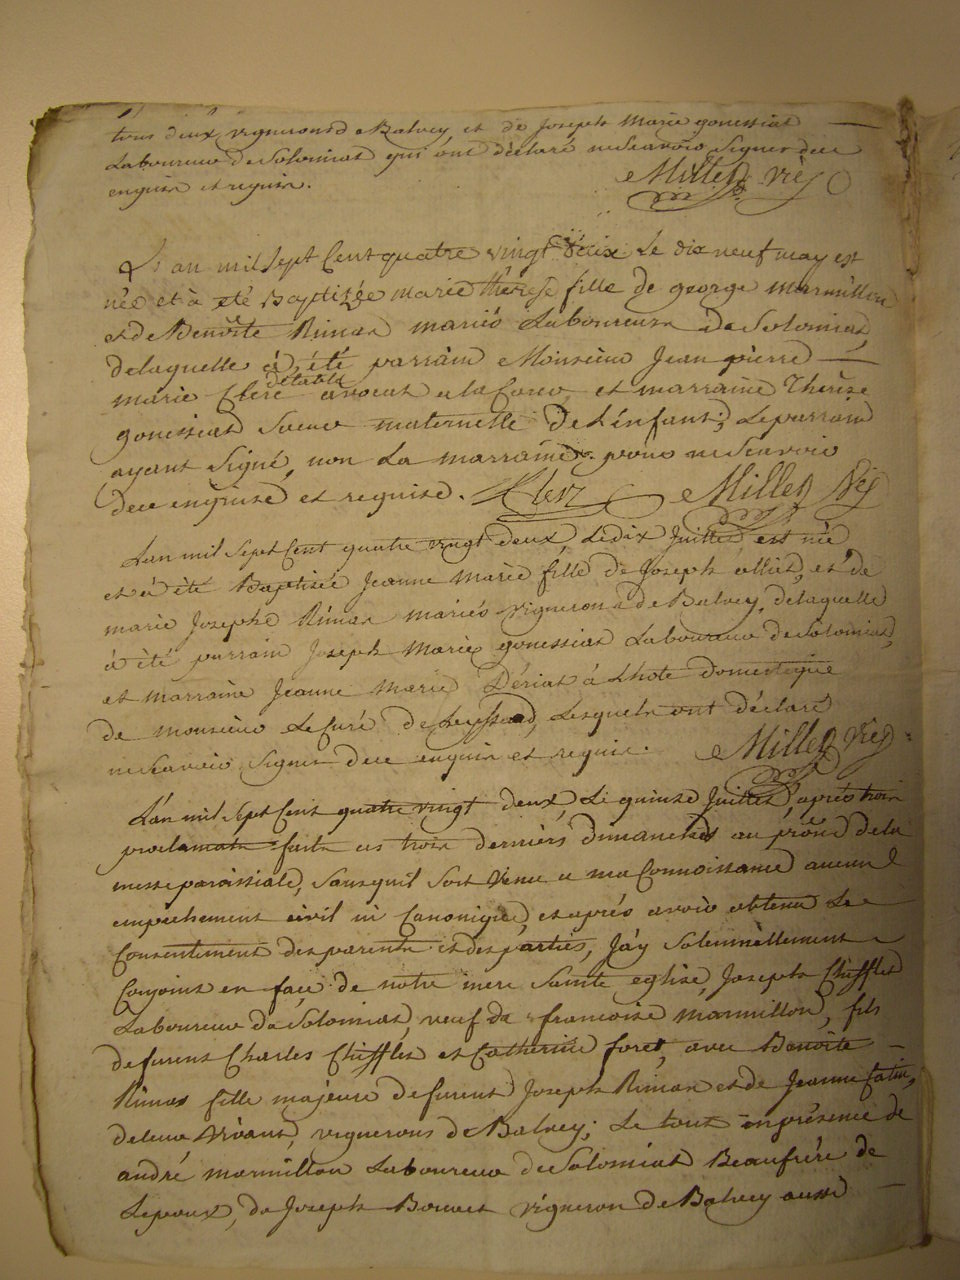 tous deux vignerons de Balvey, et de Joseph Marie gonessiat
Laboureur de Solomiat qui ont déclaré ne Scavoir Signer de ce
enquis et requis. Millet viĉ
L'an mil Sept Cent quatre vingt deux Le dix neuf may est
née et à été Baptizée marie thérese fille de george marmillon
et de Benoîte Rimas mariés Laboureurs de Solomiat,
delaquelle à été parrain Monsieur Jean pierre
détable
marie Clerc avocat a la Cour, et marraine Thérèse
gonessiat Sœur maternelle de L'enfant; Le parrain
ayant Signé, non La marraine pour ne Scavoir
de ce enquise et requise. Clerc Millet Viĉ
L'an mil Sept Cent quatre vingt deux Le dix Juillet est née
et à été Baptisée Jeanne Marie fille de Joseph alliat, et de
marie Josephe Rimas mariés vignerons de Balvey, delaquelle
à été parrain Joseph Marie gonessiat Laboureur de Solomiat,
et marraine Jeanne Marie Dériat à Lhote domestique
de monsieur Le Curé de Leyssard, Lesquels ont déclaré
ne Scavoir Signer de ce enquis et requis. Millet Viĉ
L'an mil Sept Cent quatre vingt deux, Le quinze Juillet, après trois
proclamats faits ces trois derniers dimanches au prône de la
messe paroissiale, Sans qu'il Soit venu a ma Connoissance aucun
empêchement civil ni Canonique, et après avoir obtenu Le
Consentiment des parents et des parties, J'ay Solemnèllement
Conjoint en face de notre mere Sainte eglise, Joseph Chifflet
Laboureur de Solomiat, veuf de francoise marmillon, fils
de furent Charles Chifflet et Catherine foret, avec Benoîte
Rimas fille majeure de furent Joseph Rimas et de Jeanne Catin,
de leur vivant vignerons de Balvey; Le tout en présence de
andré marmillon Laboureur de Solomiat Beaufrére de
Lepoux, de Joseph Bouvet vigneron de Balvey aussi